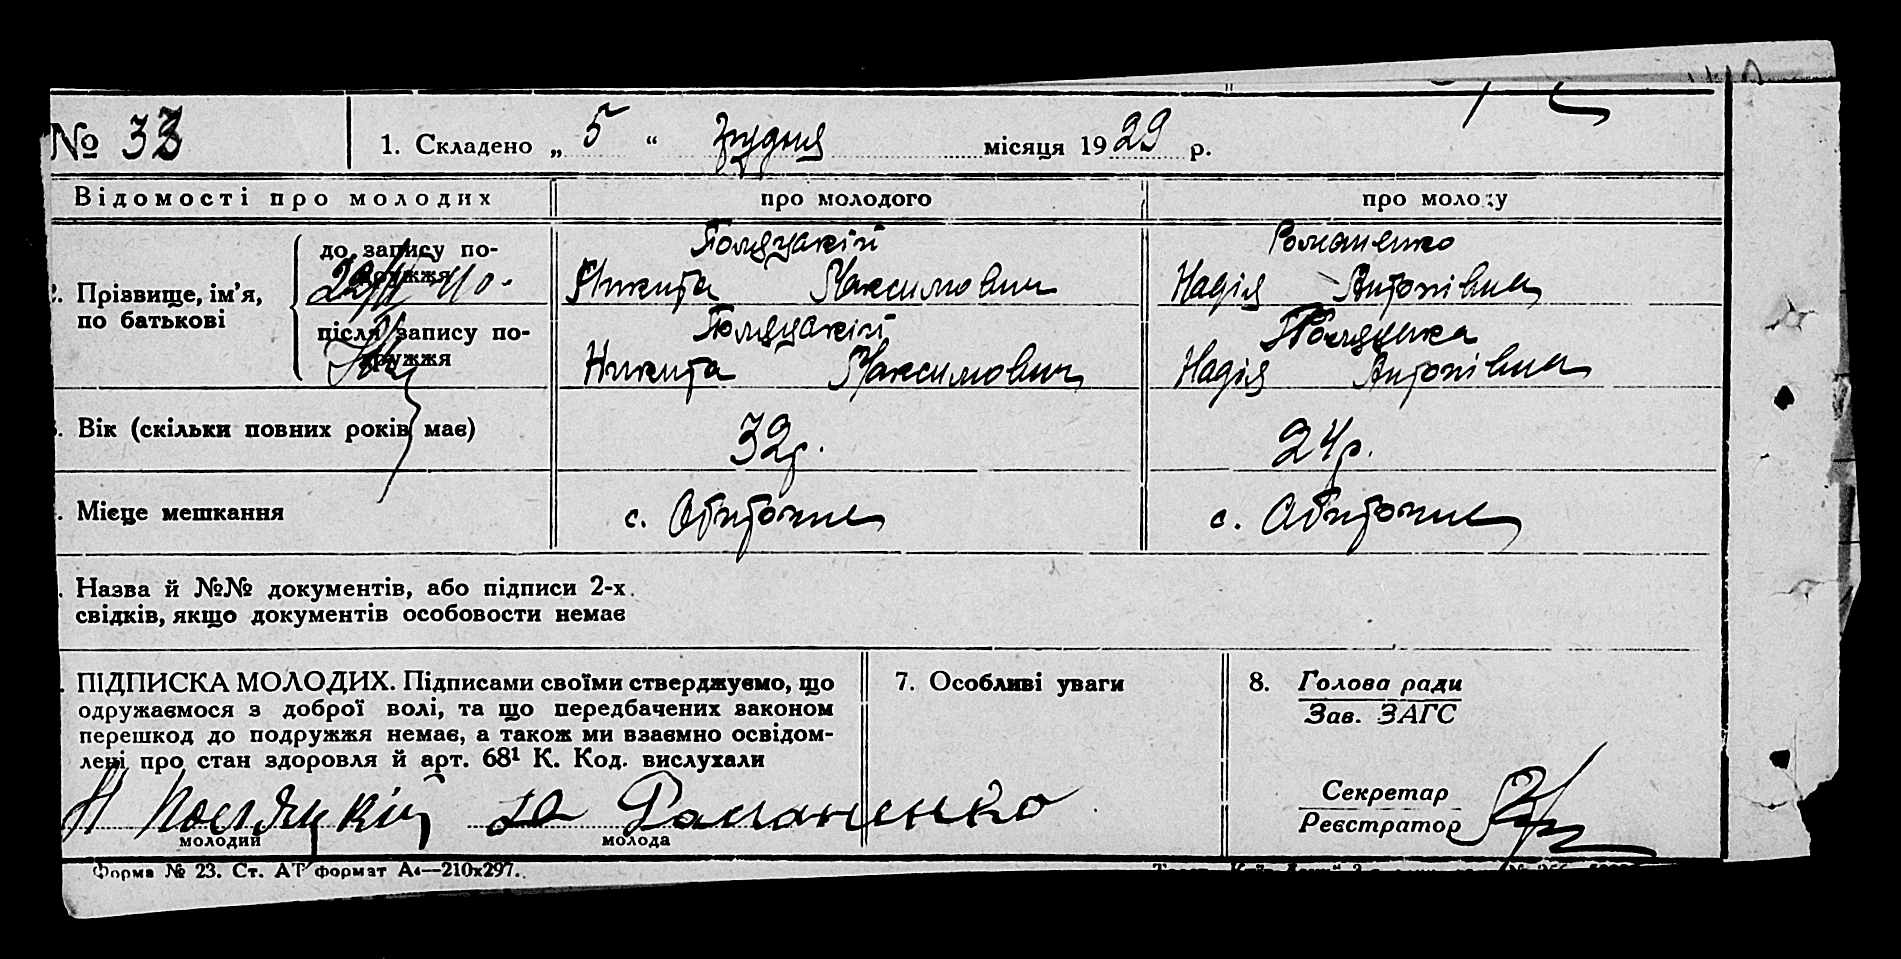 № 33
1. Складено „ 5 “ грудня місяця 1929 р.
Відомості про молодих
про молодого
про молоду
Прізвище, ім’я,
по батькові
до запису по-
дружжя
Поляцкій
Никита Максимович
Романенко
Надія Антонівна
після запису по-
дружжя
Поляцкій
Никита Максимович
Поляцька
Надія Антонівна
Вік (скільки повних років має)
32 р.
24 р.
Місце мешкання
с. Обиточне
с. Обиточне
Назва й №№ документів, або підписи 2-х
свідків, якщо документів особовости немає
ПІДПИСКА МОЛОДИХ. Підписами своїми стверджуємо, що
одружаємося з доброї волі, та що передбачених законом
перешкод до подружжя немає, а також ми взаємно освідом-
лені про стан здоровля й арт. 68¹ К. Код. вислухали
Н Поляцкій
Романенко
молодий
молода
7. Особливі уваги
8. Голова ради
Зав. ЗАГС
Секретар
Реєстратор
Форма № 23. Ст. АТ формат А₄—210х297.